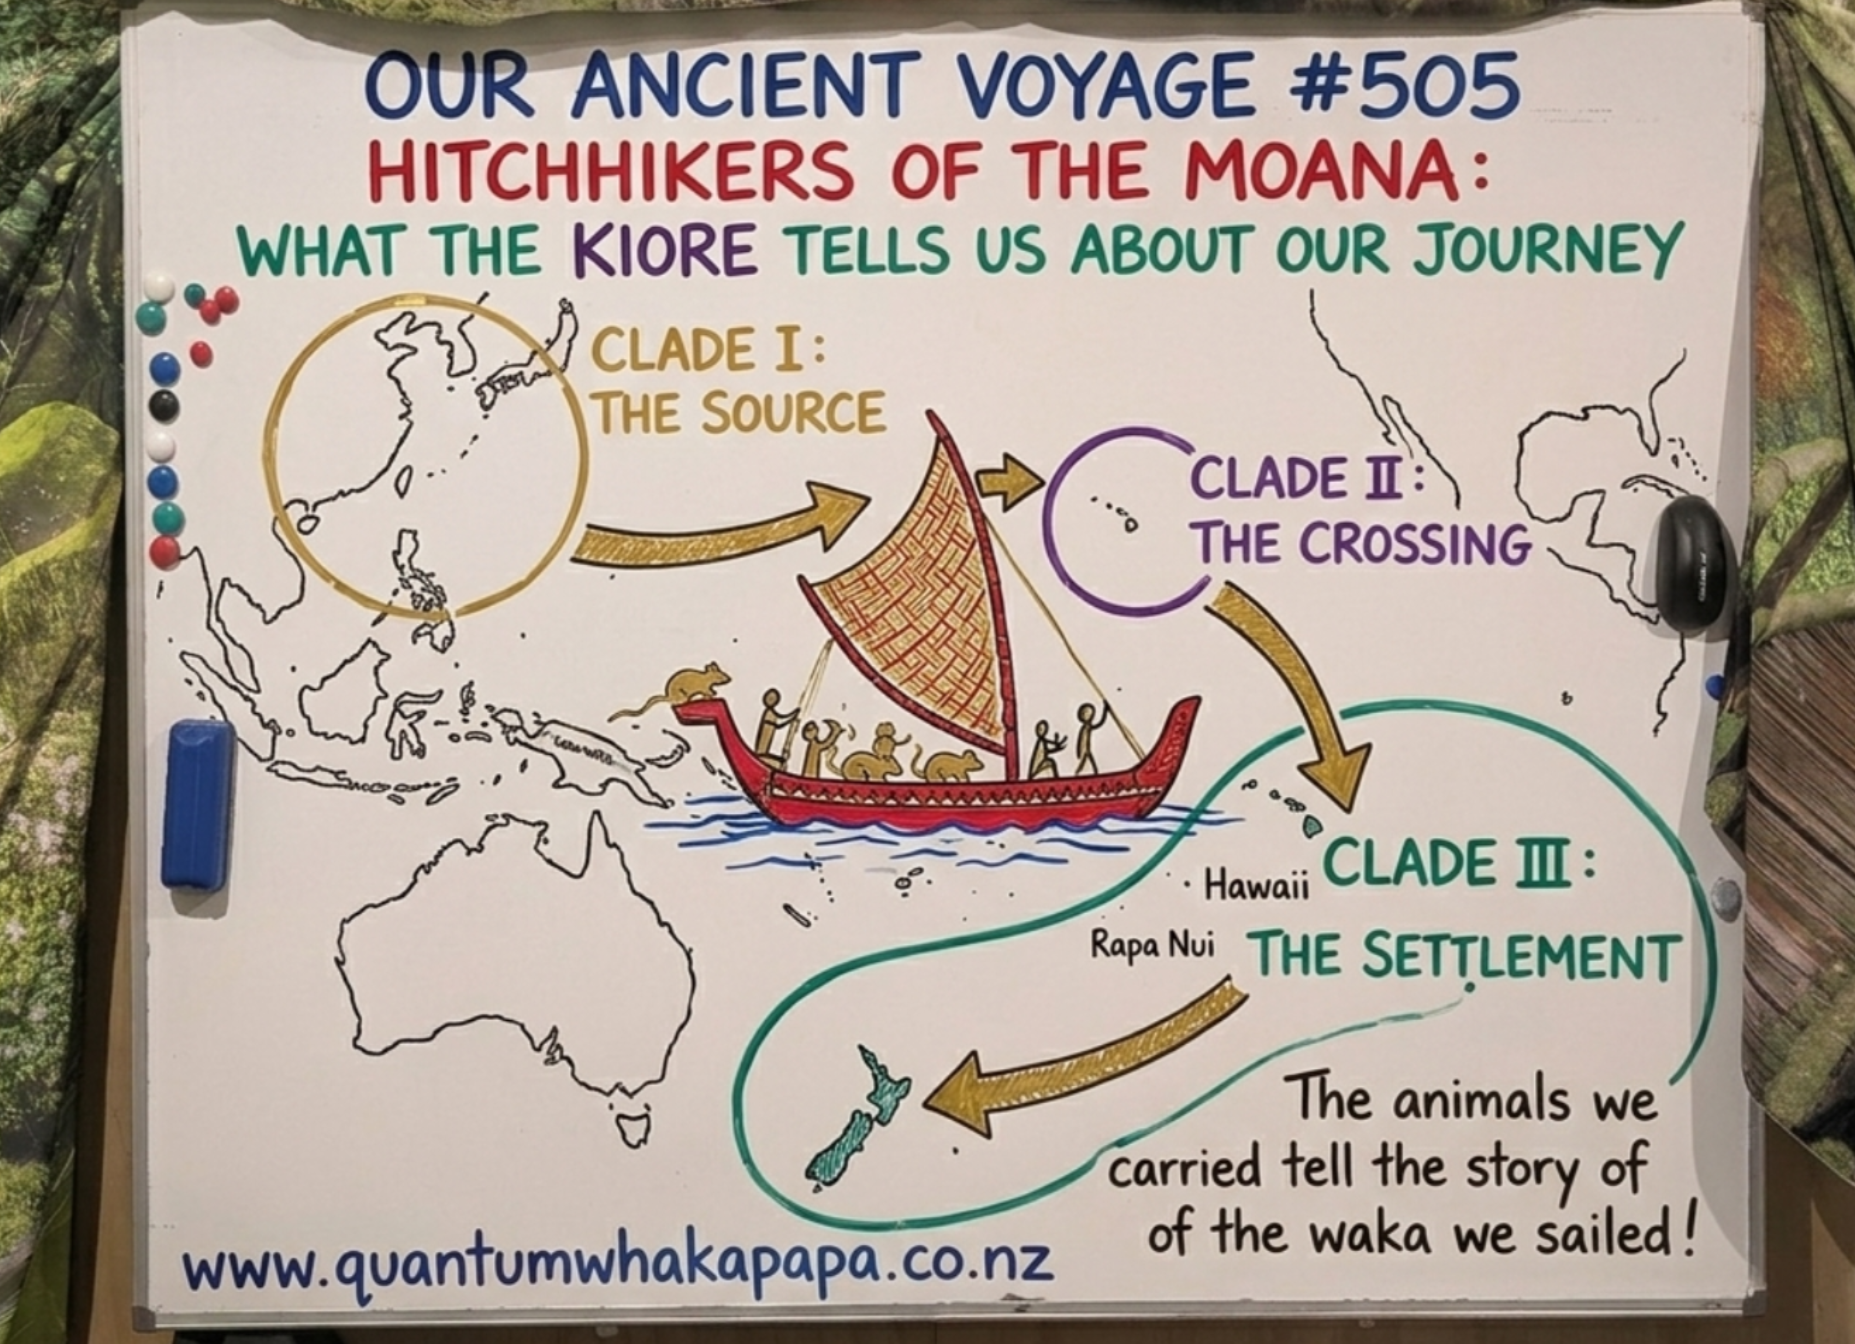 OUR ANCIENT VOYAGE #505
HITCHHIKERS OF THE MOANA:
WHAT THE KIORE TELLS US ABOUT OUR JOURNEY
CLADE I:
THE SOURCE
CLADE II:
THE CROSSING
Hawaii
CLADE III:
Rapa Nui
THE SETTLEMENT
The animals we
carried tell the story of
of the waka we sailed!
www.quantumwhakapapa.co.nz